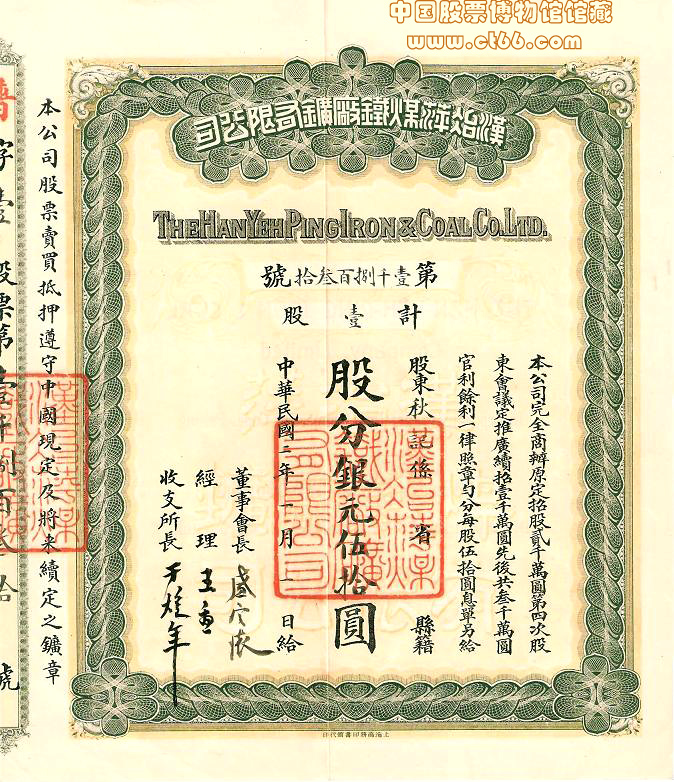 中国股票博物馆馆藏
www.ct66.com
漢冶萍煤鐵廠鑛有限公司
THE HAN YEH PING IRON & COAL CO. LTD.
第壹千捌百叁拾號
計壹股
本公司完全商辦原定招股貳千萬圓第四次股
東會議定推廣續招壹千萬圓先後共叁千萬圓
官利餘利一律照章勻分每股伍拾圓息單另給
股東秋記係 省 縣籍
股分銀元伍拾圓
中華民國二年一月一日給
董事會長
經理 王
收支所長
本公司股票賣買抵押遵守中國現定及將來續定之鑛章
字壹股票第壹千捌百叁拾號
上海商務印書館代印